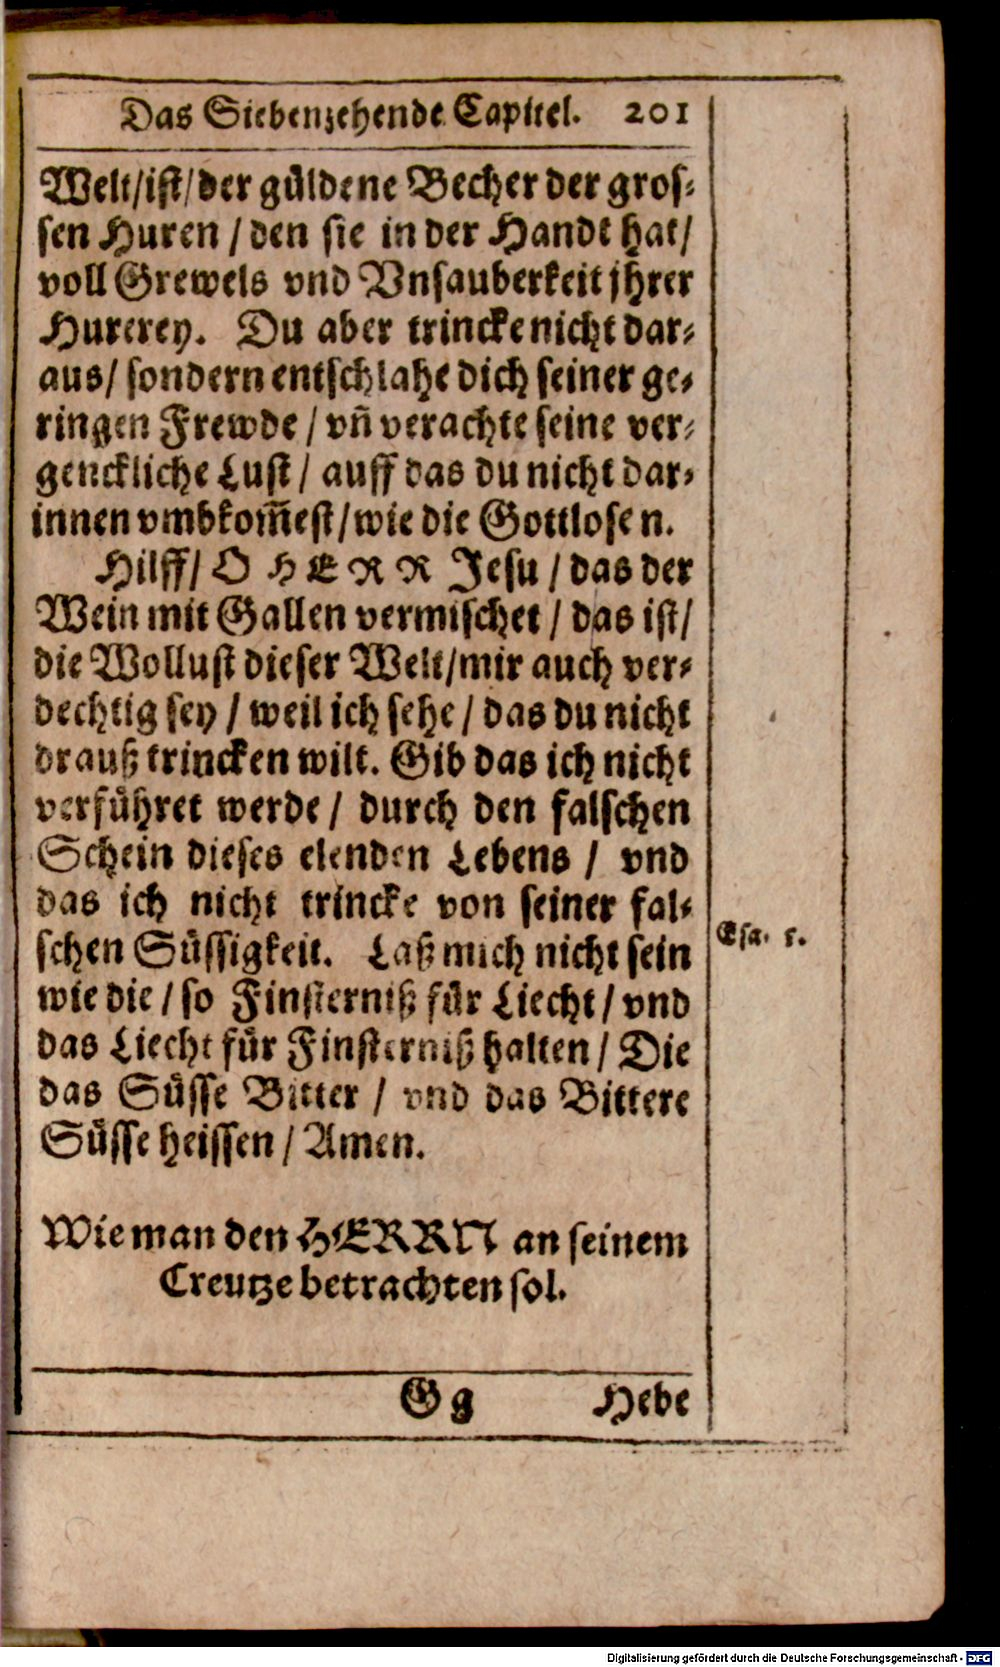 Das Siebenzehende Capitel. 201
Welt/ist/der güldene Becher der gros-
sen Huren / den sie in der Handt hat/
voll Grewels vnd Vnsauberkeit jhrer
Hurerey. Du aber trincke nicht dar-
aus/ sondern entschlahe dich seiner ge-
ringen Frewde / vñ verachte seine ver-
genckliche Lust / auff das du nicht dar-
innen vmbkom̃est/wie die Gottlosen.
Hilff/ O HERR Jesu / das der
Wein mit Gallen vermischet / das ist/
die Wollust dieser Welt/mir auch ver-
dechtig sey / weil ich sehe / das du nicht
drauß trincken wilt. Gib das ich nicht
verführet werde / durch den falschen
Schein dieses elenden Lebens / vnd
das ich nicht trincke von seiner fal-
schen Süssigkeit. Laß mich nicht sein
Esa. 5.
wie die / so Finsterniß für Liecht / vnd
das Liecht für Finsterniß halten / Die
das Süsse Bitter / vnd das Bittere
Süsse heissen / Amen.
Wie man den HERRN an seinem
Creutze betrachten sol.
Gg Hebe
Digitalisierung gefördert durch die Deutsche Forschungsgemeinschaft - DFG